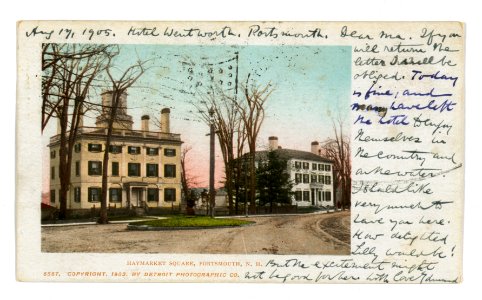 Aug 17, 1905. Hotel Wentworth. Portsmouth. Dear Ma. If you
will return the
letter I shall be
obliged. Today
is fine; and
many have left
the hotel to enjoy
themselves in
the country and
on the water.
I should like
very much to
have you here.
How delighted
Lilly would be!
But the excitement might
not be good for her. With love Edmund
HAYMARKET SQUARE, PORTSMOUTH, N. H.
6567. COPYRIGHT, 1902, BY DETROIT PHOTOGRAPHIC CO.